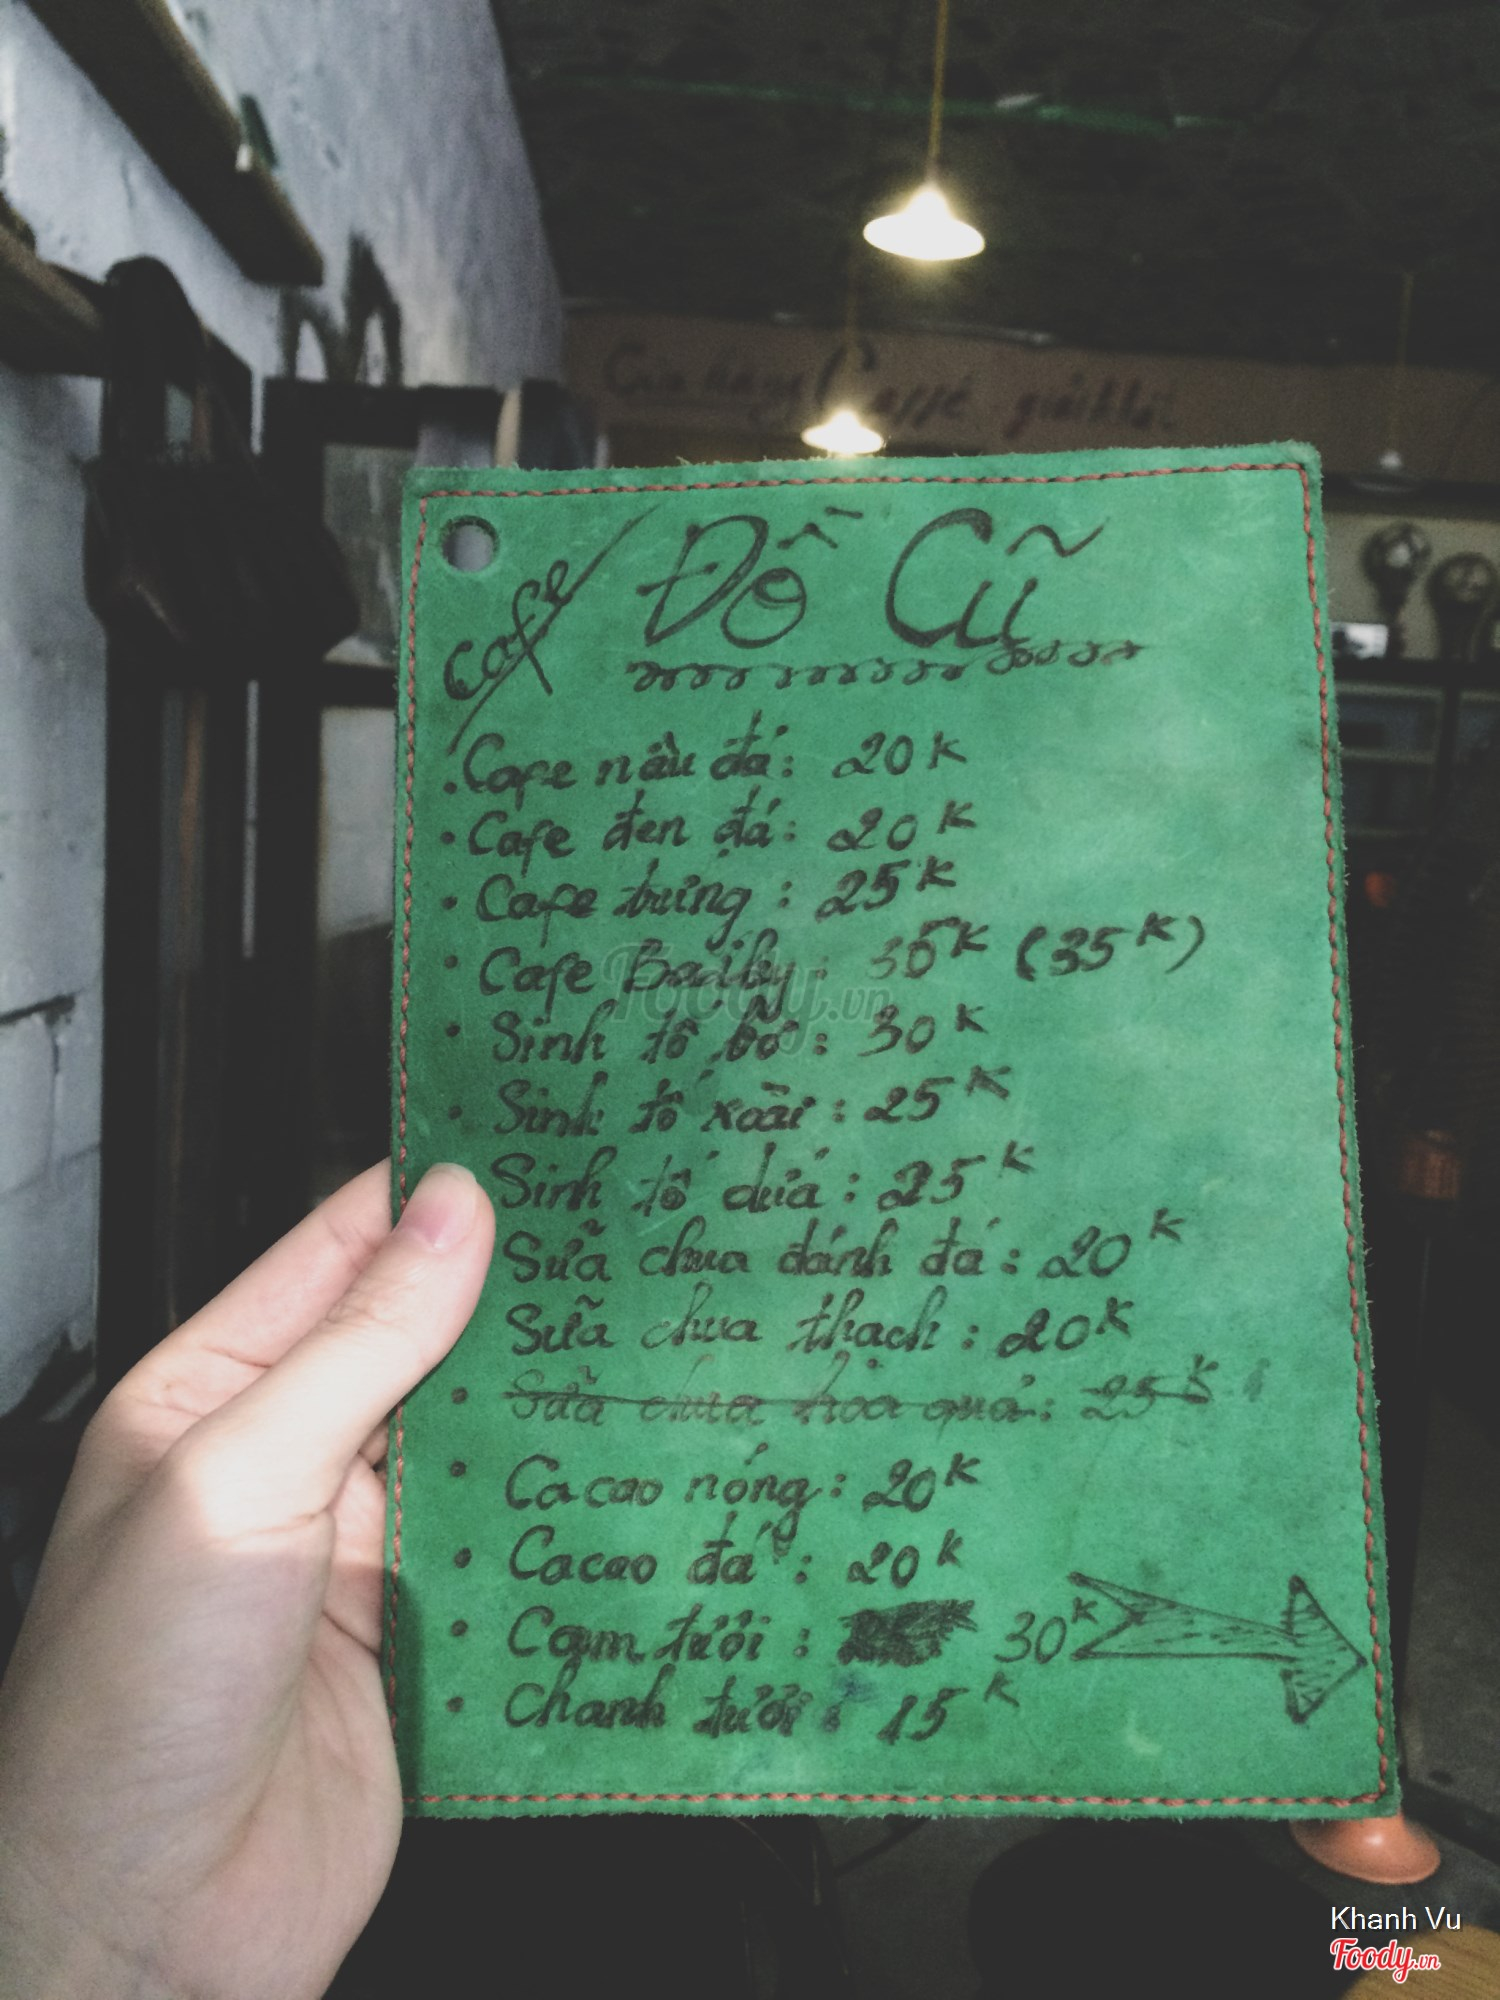 Cửa hàng Caffé giải khát
cafe Đồ Cũ
. Cafe nâu đá: 20K
• Cafe đen đá: 20K
• Cafe trứng: 25K
• Cafe Bailey: 35K (35K)
• Sinh tố bơ: 30K
• Sinh tố xoài: 25K
Sinh tố dứa: 25K
Sữa chua đánh đá: 20K
Sữa chua thạch: 20K
• Sữa chua hoa quả: 25K
• Cacao nóng: 20K
• Cacao đá: 20K
• Cam tươi: 30K
• Chanh tươi: 15K
Foody.vn
Khanh Vu
Foody.vn